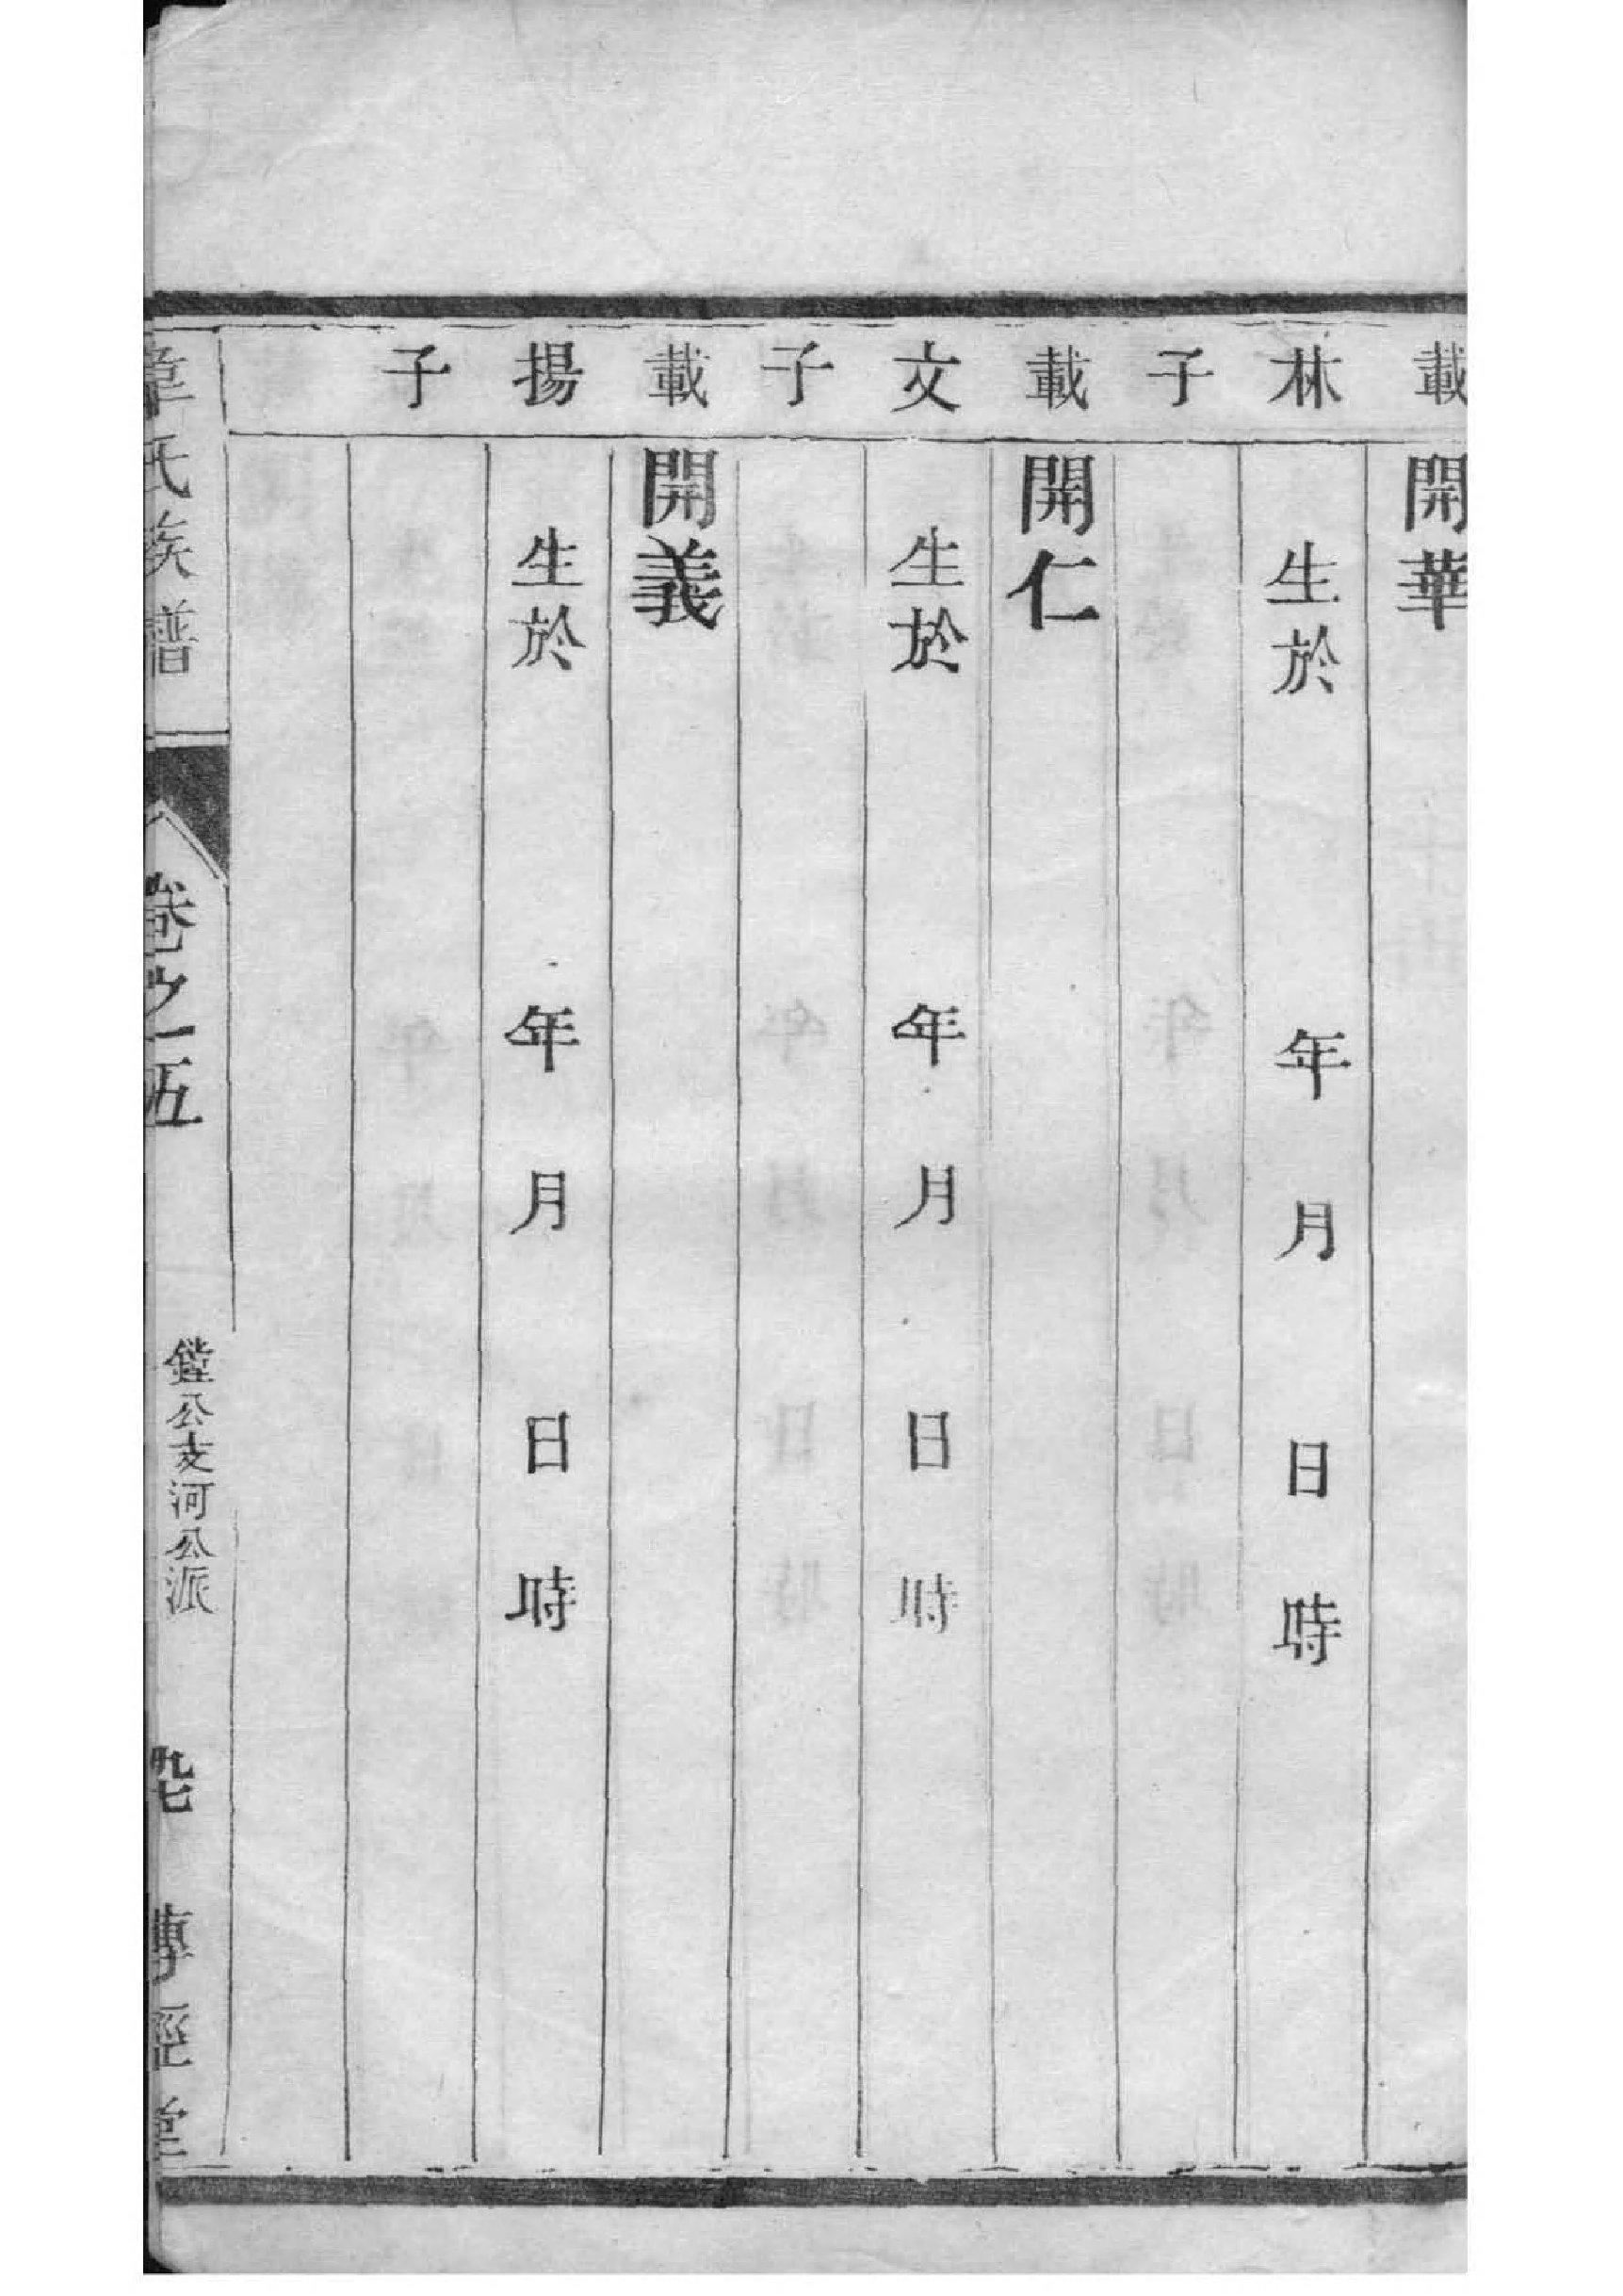 載林子
開華
生於 年 月 日 時
載文子
開仁
生於 年 月 日 時
載揚子
開義
生於 年 月 日 時
章氏族譜
卷之五
公支河公派
傳經堂